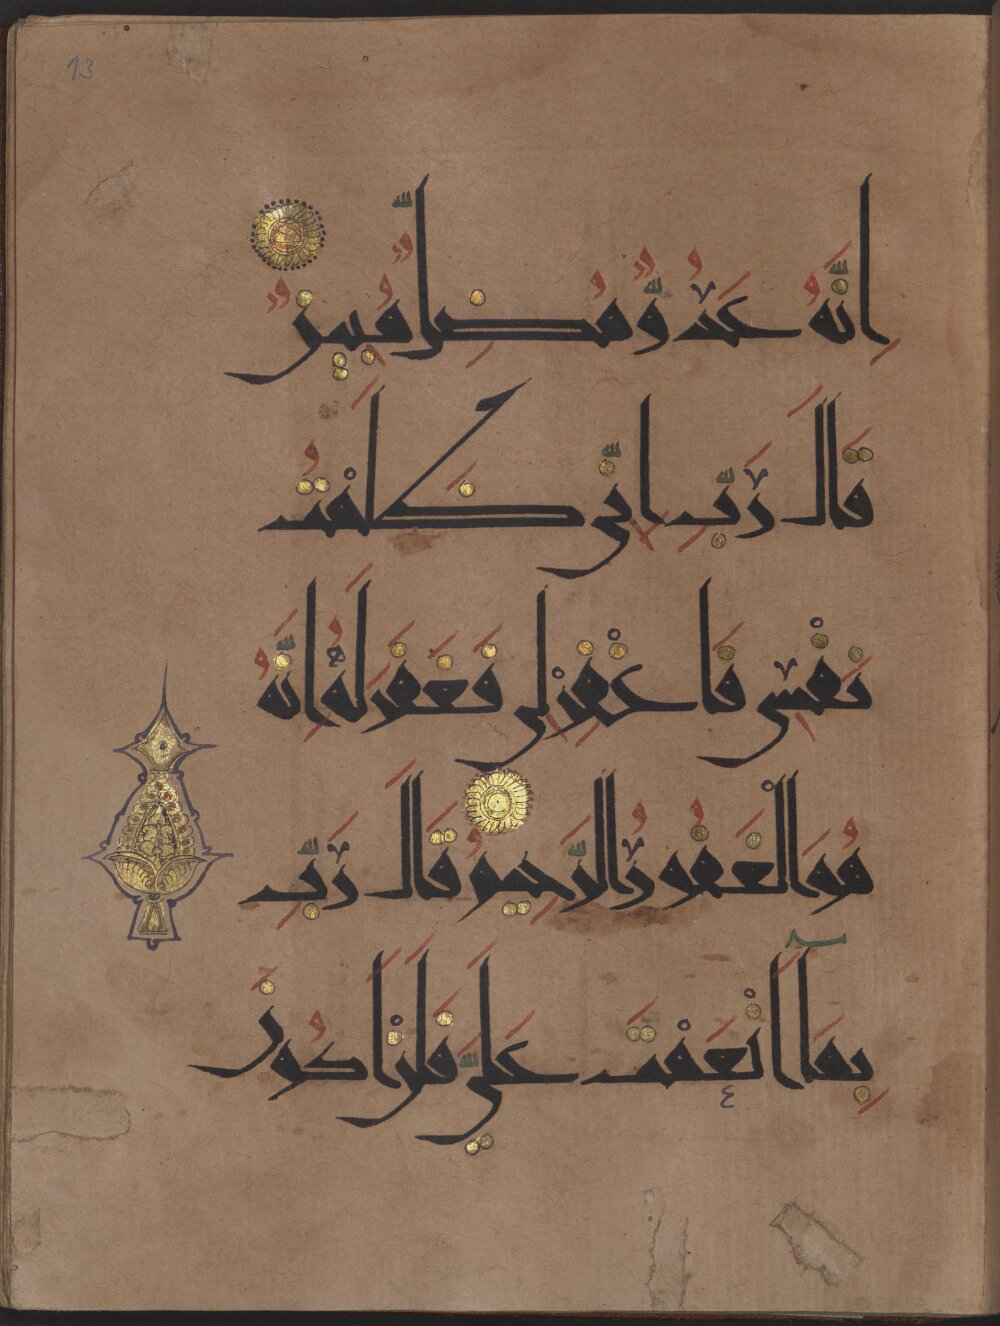 13
اِنَّهُ عَدُوٌّ مُّضِلٌّ مُّبِينٌ
قَالَ رَبِّ اِنِّي ظَلَمْتُ
نَفْسِي فَاغْفِرْ لِي فَغَفَرَ لَهُ اِنَّهُ
هُوَ الْغَفُورُ الرَّحِيمُ قَالَ رَبِّ
بِمَآ اَنْعَمْتَ عَلَيَّ فَلَنْ اَكُونَ